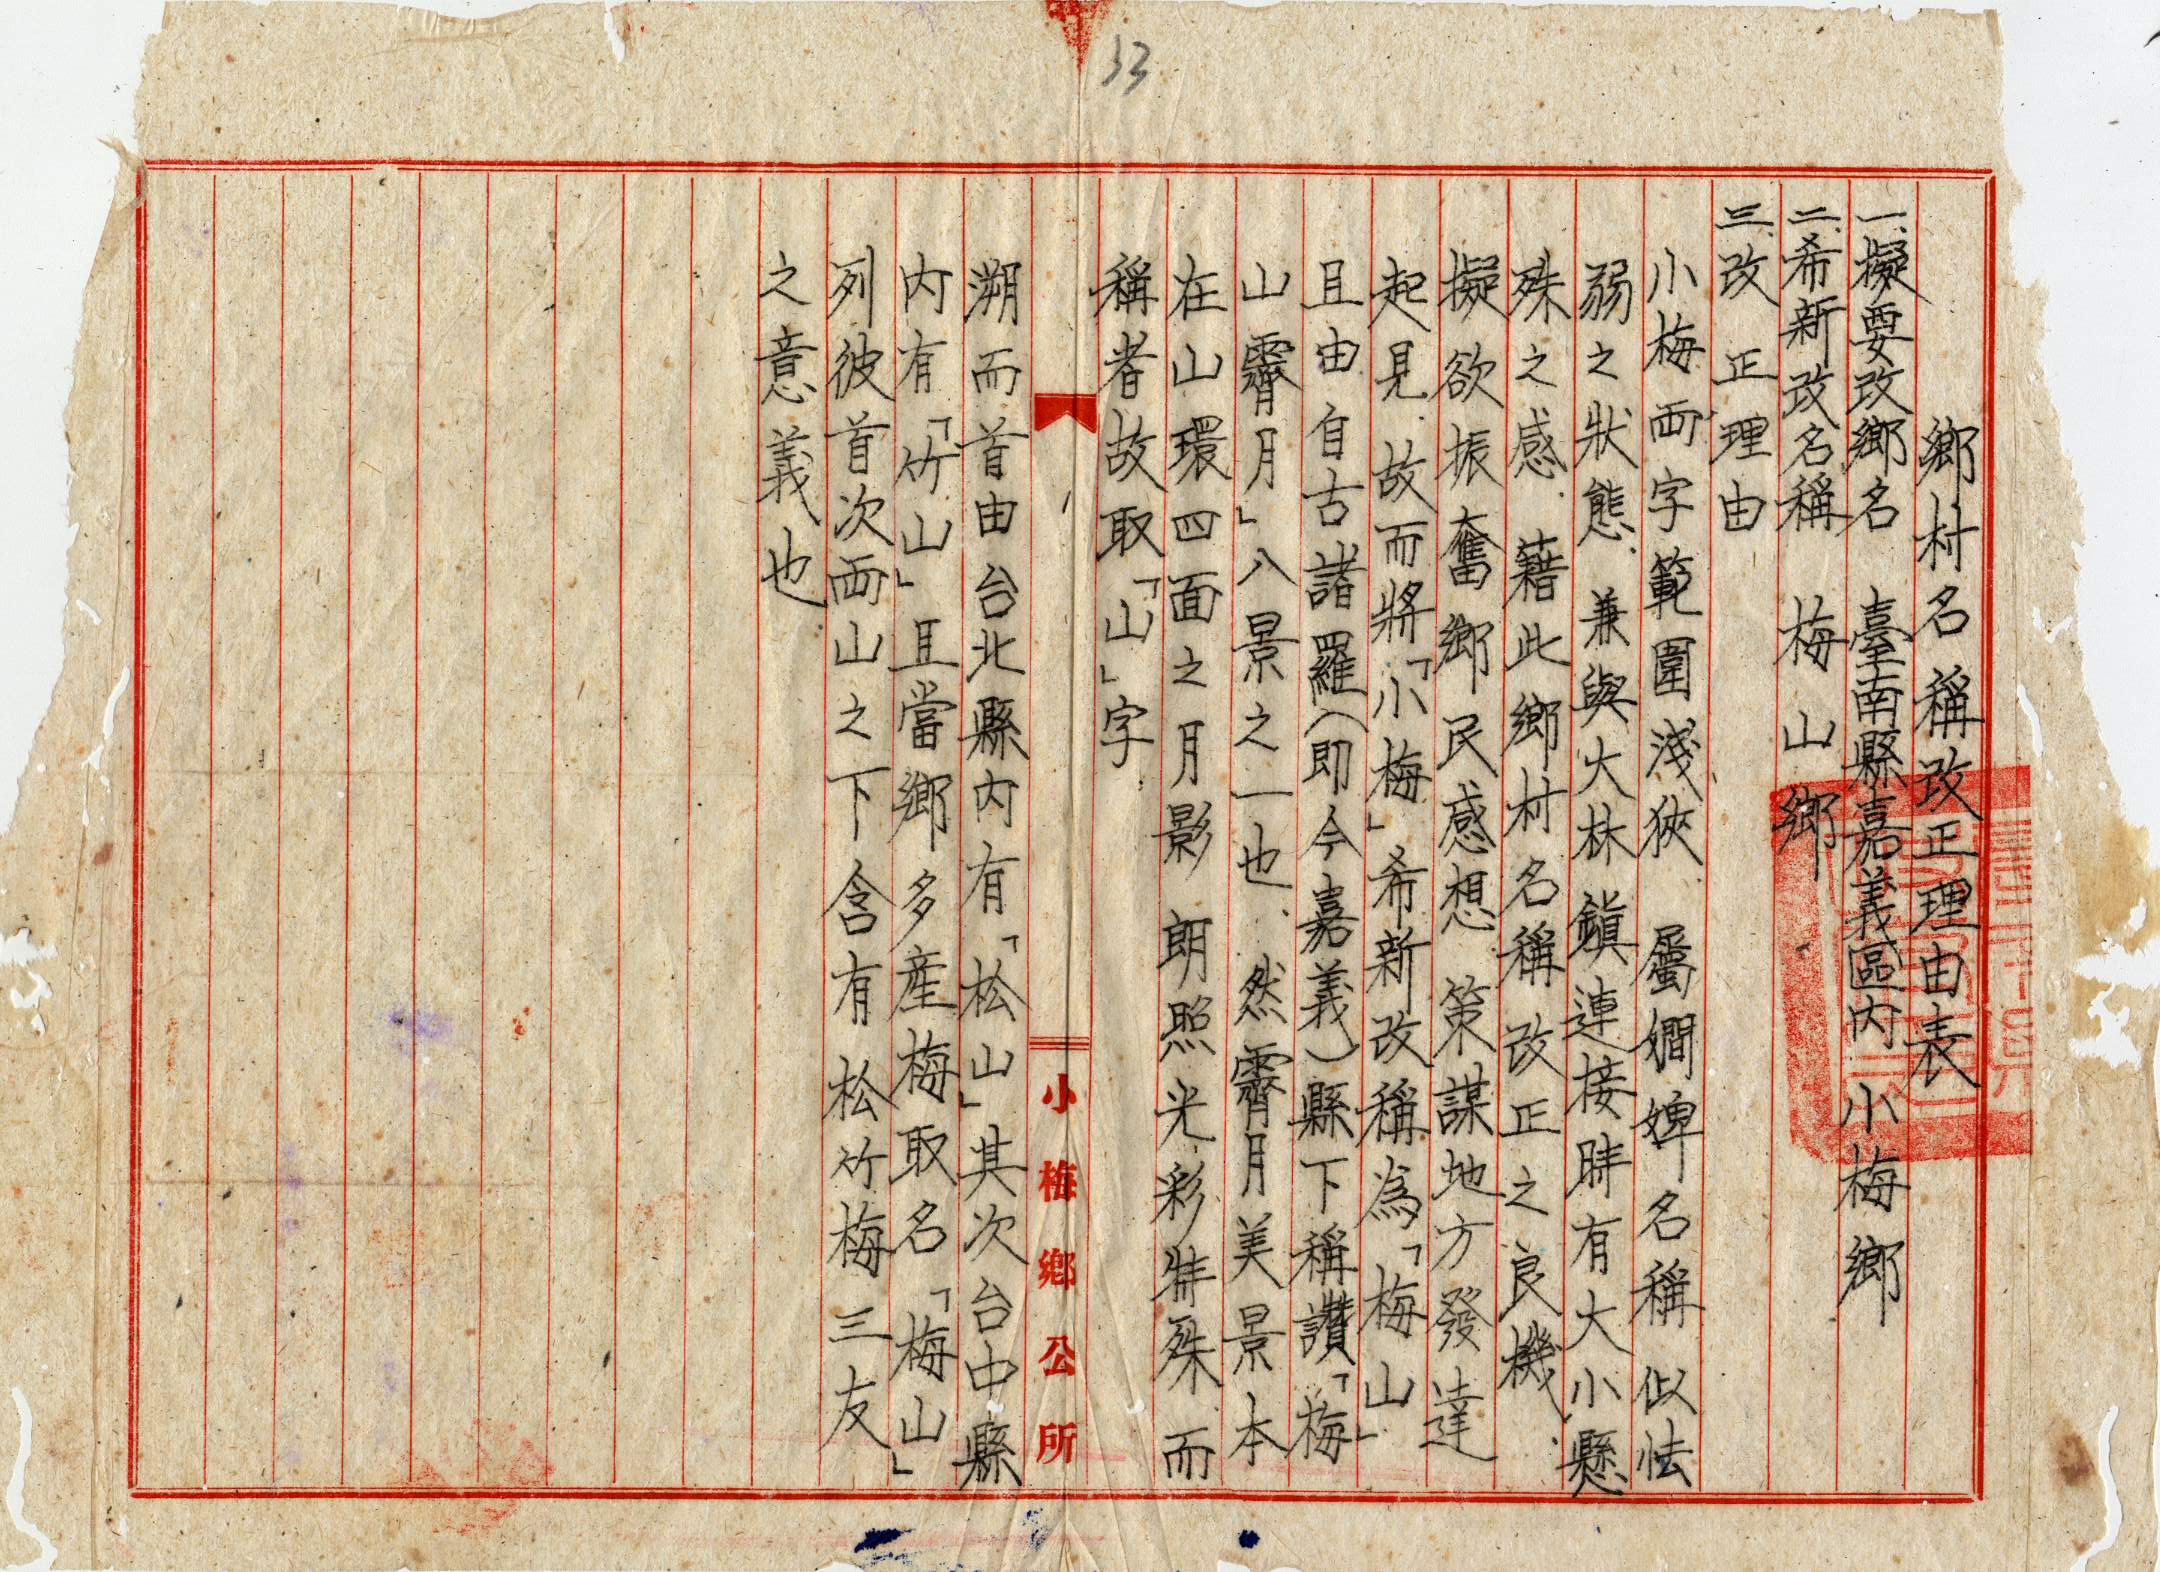 33
鄉村名稱改正理由表
一、擬要改鄉名 臺南縣嘉義區內小梅鄉
二、希新改名稱 梅山鄉
三、改正理由
小梅両字範圍淺狹 屬嫺婢名稱似怯
弱之狀態、兼與大林鎮連接時有大小懸
殊之感 藉此鄉村名稱改正之良機、
擬欲振奮鄉民感想 策謀地方發達
起見 故而將「小梅」希新改稱為「梅山」
且由自古諸羅(即今嘉義)縣下稱讚「梅
山霽月」八景之一也、然霽月美景本
在山環四面之月影 朗照光彩特殊而
稱者故取「山」字
小梅鄉公所
溯而首由台北縣內有「松山」其次台中縣
內有「竹山」且當鄉多産梅取名「梅山」
列彼首次両山之下含有松竹梅三友
之意義也